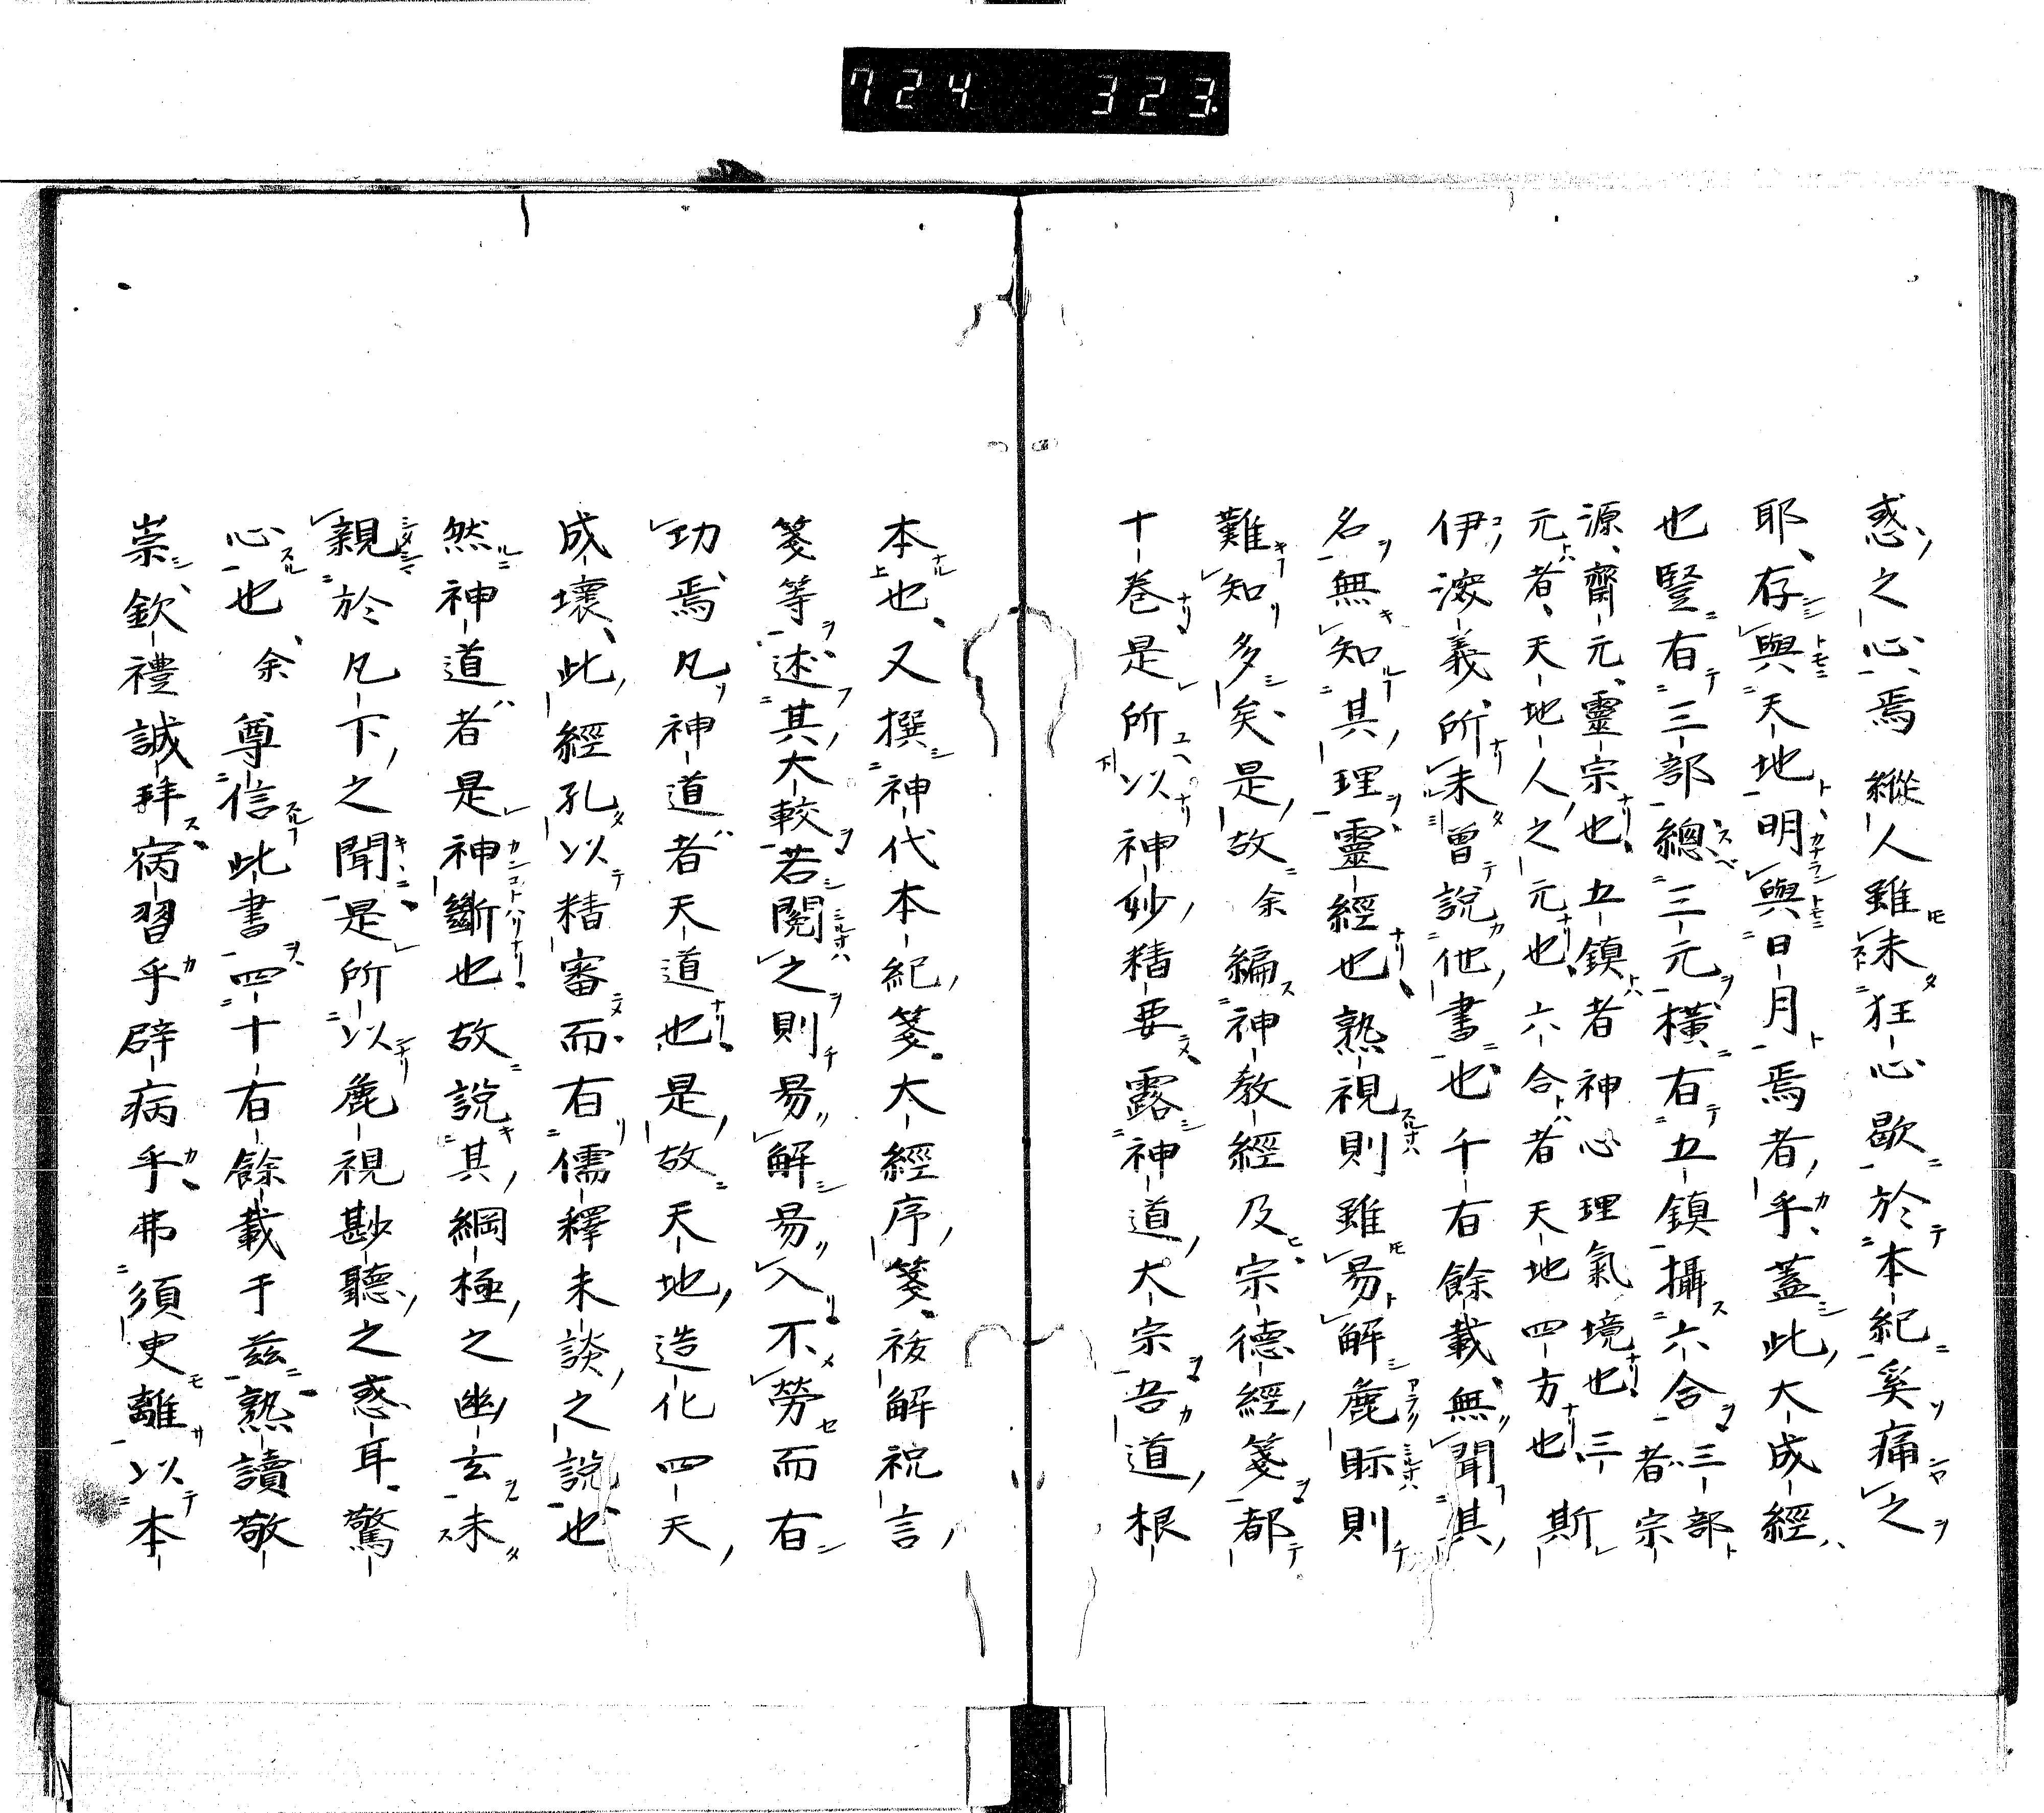 724 323
惑之心焉縱人雖未狂心歇於本紀奚痛之
耶存與天地明與日月焉者乎蓋此大成經
也豎有三部總三元橫有五鎮攝六合三部者宗
源齋元靈宗也五鎮者神心理氣境也三
元者天地人之元也六合者天地四方也斯
伊深義所未曾說他書也千有餘載無聞其
名無知其理靈經也熟視則雖易解麁眎則
難知多矣是故余編神教經及宗德經箋都
十卷是所以神妙精要露神道大宗吾道根
本也又撰神代本紀箋大經序箋祓解祝言
箋等述其大較若閱之則易解易入不勞而有
功焉凡神道者天道也是故天地造化四天
成壞此經孔以精審而有儒釋未談之說也
然神道者是神斷也故說其綱極之幽玄未
親於凡下之聞是所以麁視尠聽之惑耳驚
心也余尊信此書四十有餘載于茲熟讀敬
崇欽禮誠拜病習乎辟病乎弗須更離以本